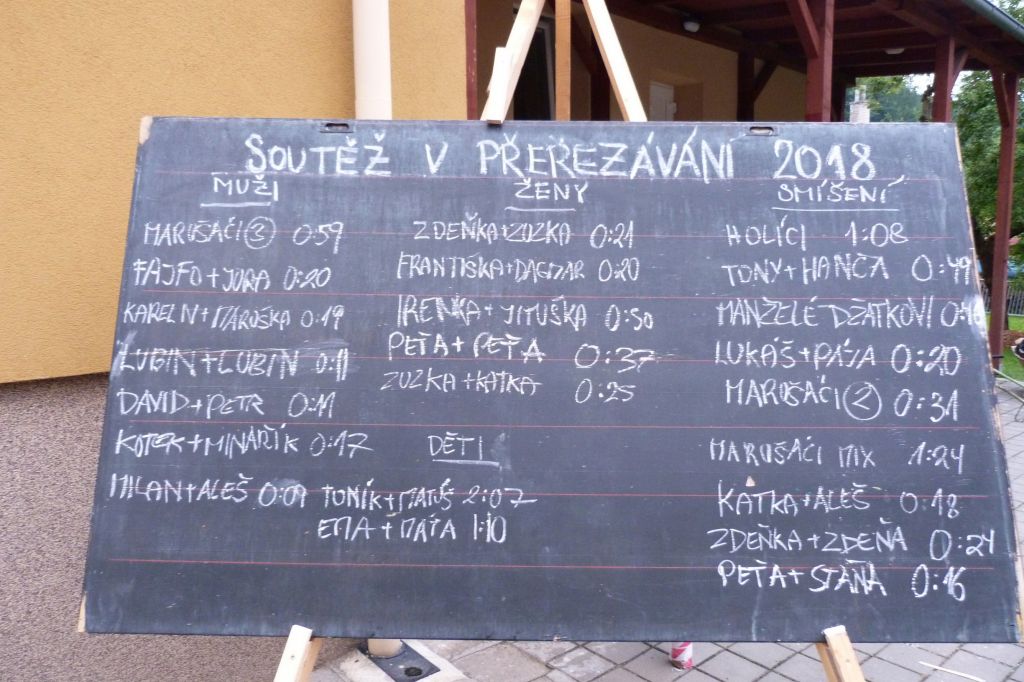 SOUTĚŽ V PŘEŘEZÁVÁNÍ 2018
MUŽI
MARUŠÁCI 3 0:59
FAJFO+JURA 0:20
KAREL N+MAROŠKA 0:19
LUBIN+LUBIN 0:11
DAVID+PETR 0:11
KOTEK+MINAŘÍK 0:17
MILAN+ALEŠ 0:09
ŽENY
ZDEŇKA+ZUZKA 0:21
FRANTIŠKA+DAGMAR 0:20
IRENKA+JITUŠKA 0:50
PEŤA+PEŤA 0:37
ZUZKA+KATKA 0:25
DĚTI
TONÍK+MATÚŠ 2:07
EMA+MÁŤA 1:10
SMÍŠENÍ
HOLÍCI 1:08
TONY+HANČA 0:49
MANŽELÉ DŽATKOVI
LUKÁŠ+PÁJA 0:20
MARUŠÁCI 2 0:31
MARUŠÁCI MIX 1:24
KATKA+ALEŠ 0:18
ZDEŇKA+ZDEŇA 0:24
PEŤA+STÁŇA 0:16